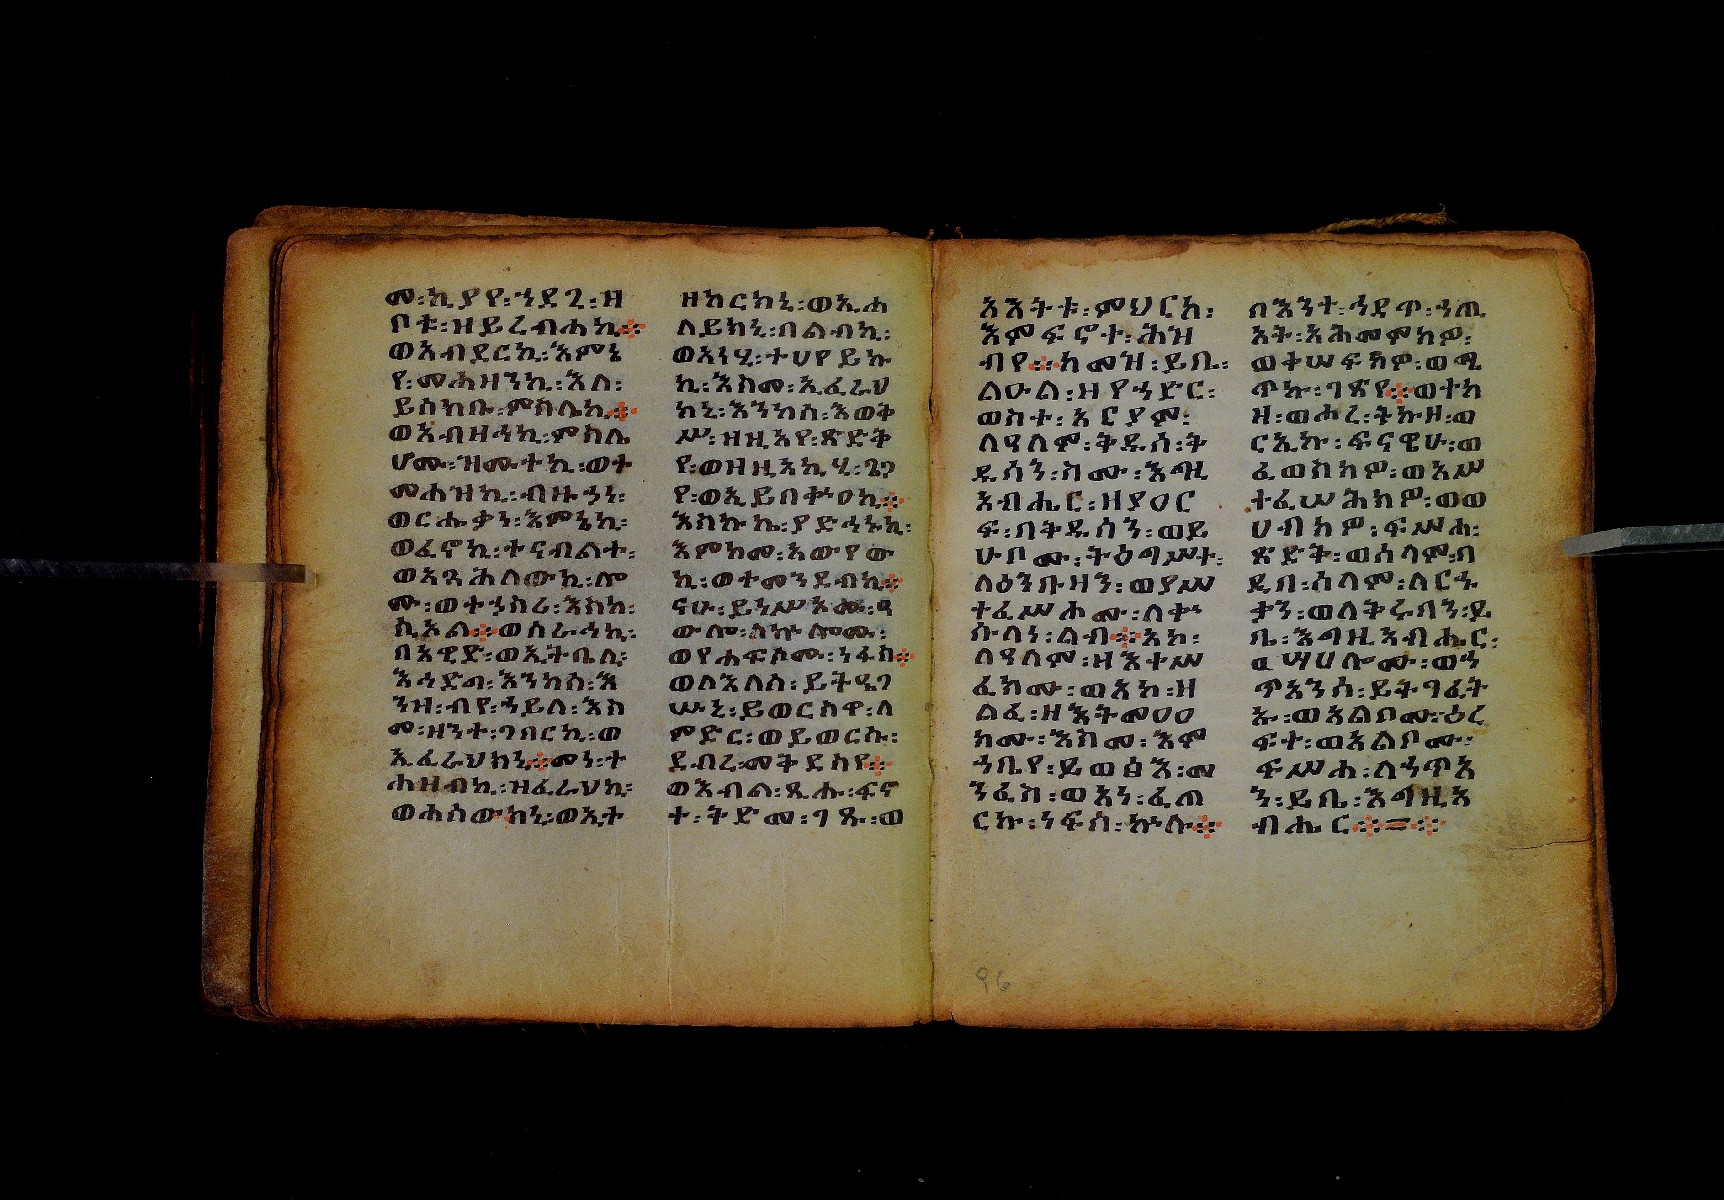 መ፡ኪያየ፡ኀደጊ፡ዘ
ቦቱ፡ዝይረብሐኪ፨
ወአብደርኪ፡እምኔ
የ፡መሐዛንኪ፡እለ፡
ይሰክቡ፡ምስሌኪ፨
ወአብዛኅኪ፡ምስሌ
ሆሙ፡ዝሙተኪ፡ወተ
መሐዝኪ፡ብዙኃነ፡
ወርሑቃነ፡እምኔኪ፡
ወፈኖኪ፡ተናብልተ፡
ወአጓሕለውኪ፡ሎ
ሙ፡ወተኃስረ፡እስከ፡
ሲኦል፨ወሰራሓኪ፡
በእዊድ፡ወኢትቤሊ፡
እኅድግ፡እንከሰ፡እ
ንዝ፡ብየ፡ኀይለ፡እስ
መ፡ዘንተ፡ገበርኪ፡ወ
ኢፈራህክኒ፨መነ፡ተ
ሐዝብኪ፡ዝፈራህኪ፡
ወሐሰውክኒ፡ወኢተ
ዘከርክኒ፡ወኢሐ
ለይክኒ፡በልብኪ፡
ወአነሂ፡ተሀየይኩ
ኪ፡እስመ፡ኢፈራህ
ክኒ፡እንከሰ፡እወቅ
ሥ፡ዝዚአየ፡ጽድቅ
የ፡ወዘዚአኪሂ፡ጌጋ
የ፡ወኢይበቍዐኪ፨
እስኩኬ፡ያድኅኑኪ፡
እምከመ፡አውየው
ኪ፡ወተመንደብኪ፨
ናሁ፡ይነሥእሙ፡ዓ
ውሎ፡ለኵሎሙ፡
ወየሐፍሶሙ፡ነፋስ፨
ወለእለሰ፡ይትዌገ
ሡኒ፡ይወርስዋ፡ለ
ምድር፡ወይወርሱ፡
ደብረ፡መቅደስየ፨
ወእብል፡ጺሑ፡ፍኖ
ተ፡ቅድመ፡ገጹ፡ወ
አእትቱ፡ምህርከ፡
እምፍኖተ፡ሕዝ
ብየ፨ከመዝ፡ይቤ፡
ልዑል፡ዘየኀድር፡
ወስተ፡አርያም፡
ለዓለም፡ቅዱሰ፡ቅ
ዱሳን፡ስሙ፡እግዚ
አብሔር፡ዘያዐር
ፍ፡በቅዱሳን፡ወይ
ሁቦሙ፡ትዕግሥተ፡
ለዕንቡዛን፡ወያሥ
ተፈሥሖሙ፡ለቍ
ሱላነ፡ልብ፨አኮ፡
ለዓለም፡ዘእተሥ
ፈክሙ፡ወአኮ፡ዘ
ልፈ፡ዘእትመዐዐ
ክሙ፡እስመ፡እም
ኀቤየ፡ይወፅእ፡መ
ንፈስ፡ወአነ፡ፈጠ
ርኩ፡ነፍሰ፡ኵሉ፨
በእንተ፡ኀዳጥ፡ኀጢ
አት፡አሕመምክዎ፡
ወቀሠፍክዎ፡ወሚ
ጥኩ፡ገጽየ፨ወተከ
ዘ፡ወሖረ፡ትኩዘ፡ወ
ርኢኩ፡ፍናዊሁ፡ወ
ፈወስክዎ፡ወአሥ
ተፈሣሕክዎ፡ወወ
ሀብክዎ፡ፍሥሐ፡
ጽድቅ፡ወሰላም፡በ
ዲበ፡ሰላም፡ለርኁ
ቃን፡ወለቅሩባን፡ይ
ቤ፡እግዚአብሔር፡
ሣሀሎሙ፡ወኃ
ጥአንሰ፡ይትገፈት
ኡ፡ወአልቦሙ፡ዕረ
ፍተ፡ወአልቦሙ፡
ፍሥሐ፡ለኃጥአ
ን፡ይቤ፡እግዚአ
ብሔር፨=፨
96